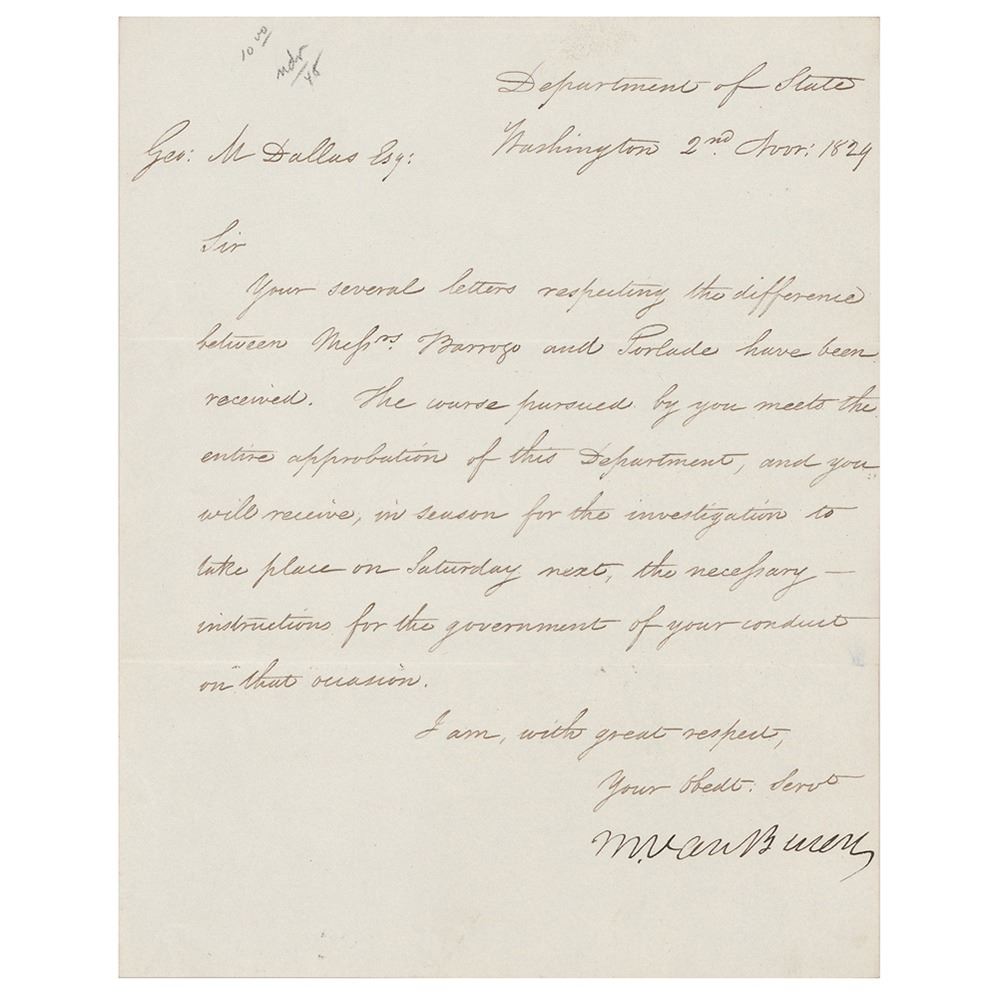 10 00
ndr/48
Department of State
Washington 2nd Novr: 1829
Geo: M Dallas Esq:
Sir
Your several letters respecting the difference
between Messrs. Barrozo and Torlade have been
received. The course pursued by you meets the
entire approbation of this Department, and you
will receive, in season for the investigation to
take place on Saturday next, the necessary —
instructions for the government of your conduct
on that occasion.
I am, with great respect,
Your Obedt: Servt
M. Van Buren